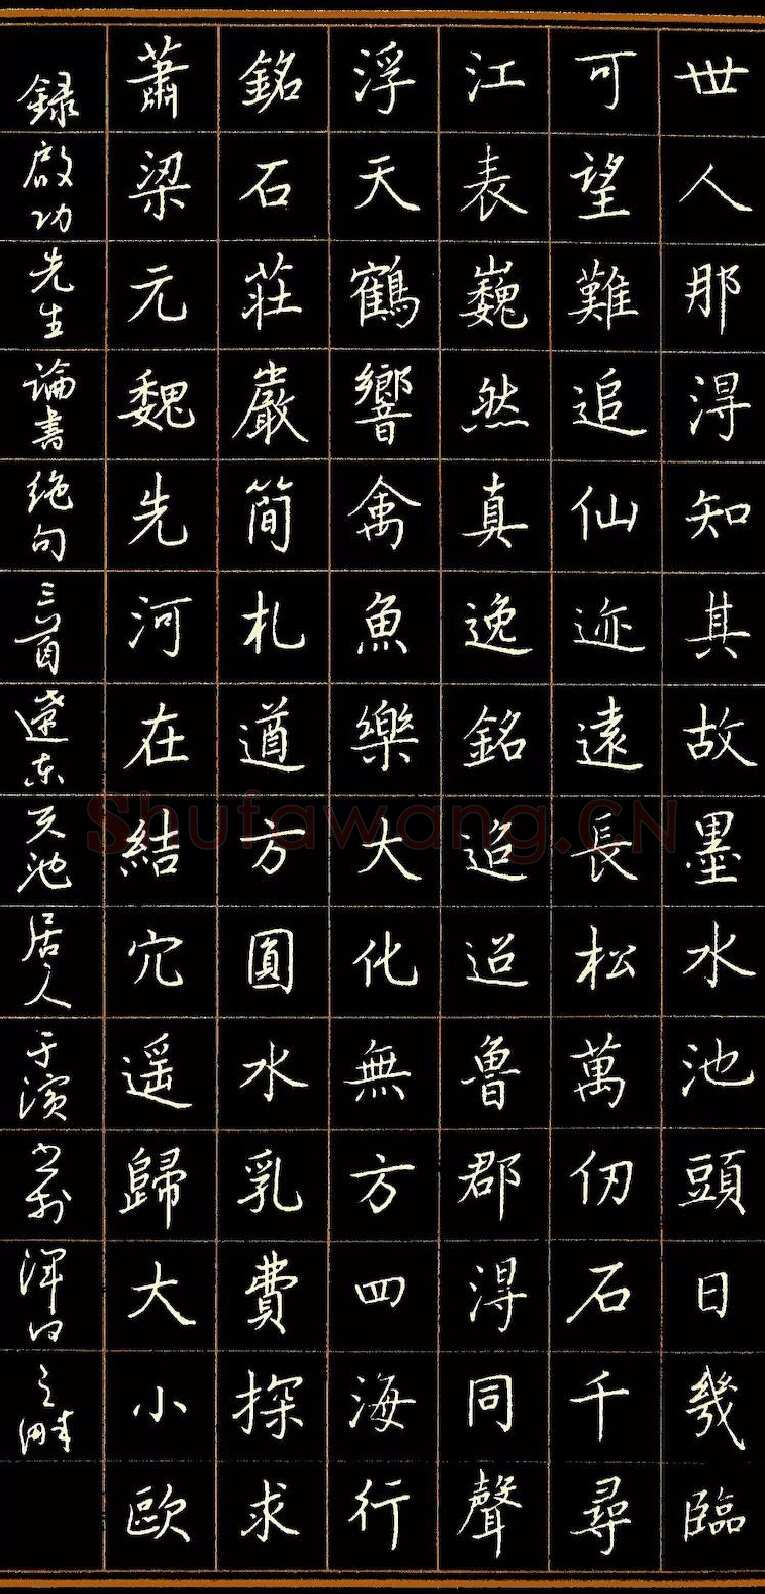 世人那得知其故墨水池頭日幾臨
可望難追仙迹遠長松萬仞石千尋
江表巍然真逸銘迢迢魯郡得同聲
浮天鶴響禽魚樂大化無方四海行
銘石莊嚴簡札遒方圓水乳費探求
蕭梁元魏先河在結穴遥歸大小歐
録啟功先生論書絶句三首遼東天池居人于濱書於渾之畔
Shufawang.CN